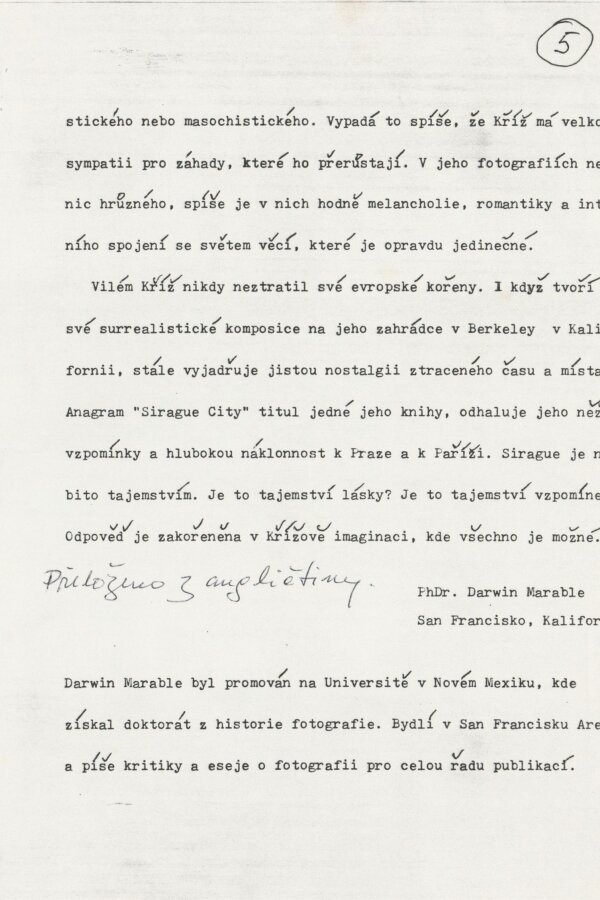 5
stického nebo masochistického. Vypadá to spíše, že Kříž má velko
sympatii pro záhady, které ho přerůstají. V jeho fotografiích ne
nic hrůzného, spíše je v nich hodně melancholie, romantiky a int
ního spojení se světem věcí, které je opravdu jedinečné.
Vilém Kříž nikdy neztratil své evropské kořeny. I když tvoří
své surrealistické komposice na jeho zahrádce v Berkeley v Kali
fornii, stále vyjadřuje jistou nostalgii ztraceného času a místa
Anagram "Sirague City" titul jedné jeho knihy, odhaluje jeho něž
vzpomínky a hlubokou náklonnost k Praze a k Paříži. Sirague je n
bito tajemstvím. Je to tajemství lásky? Je to tajemství vzpomíne
Odpověď je zakořeněna v Křížově imaginaci, kde všechno je možné.
Přeloženo z angličtiny.
PhDr. Darwin Marable
San Francisko, Kalifor
Darwin Marable byl promován na Universitě v Novém Mexiku, kde
získal doktorát z historie fotografie. Bydlí v San Francisku Are
a píše kritiky a eseje o fotografii pro celou řadu publikací.